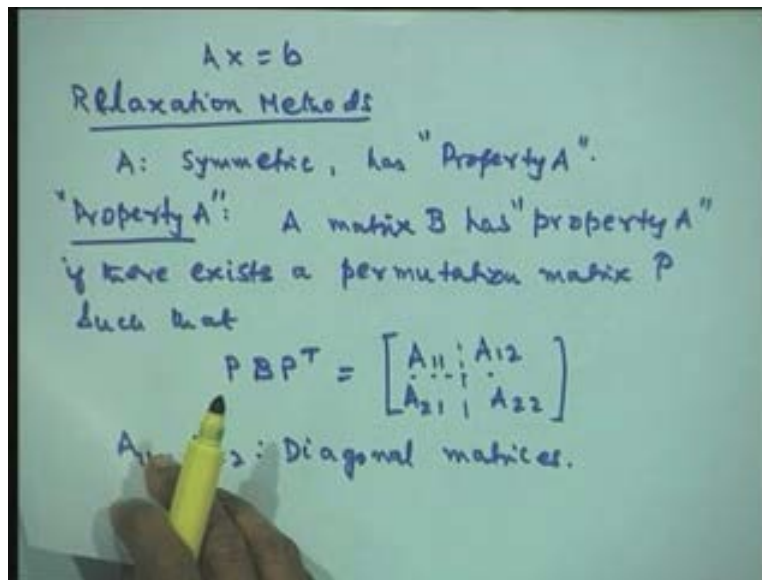 Ax = b
Relaxation Methods
A: Symmetric, has "Property A".
"Property A": A matrix B has "property A"
if there exists a permutation matrix P
such that
PBP^T = [ A11 A12
A21 A22 ]
A11 2: Diagonal matrices.